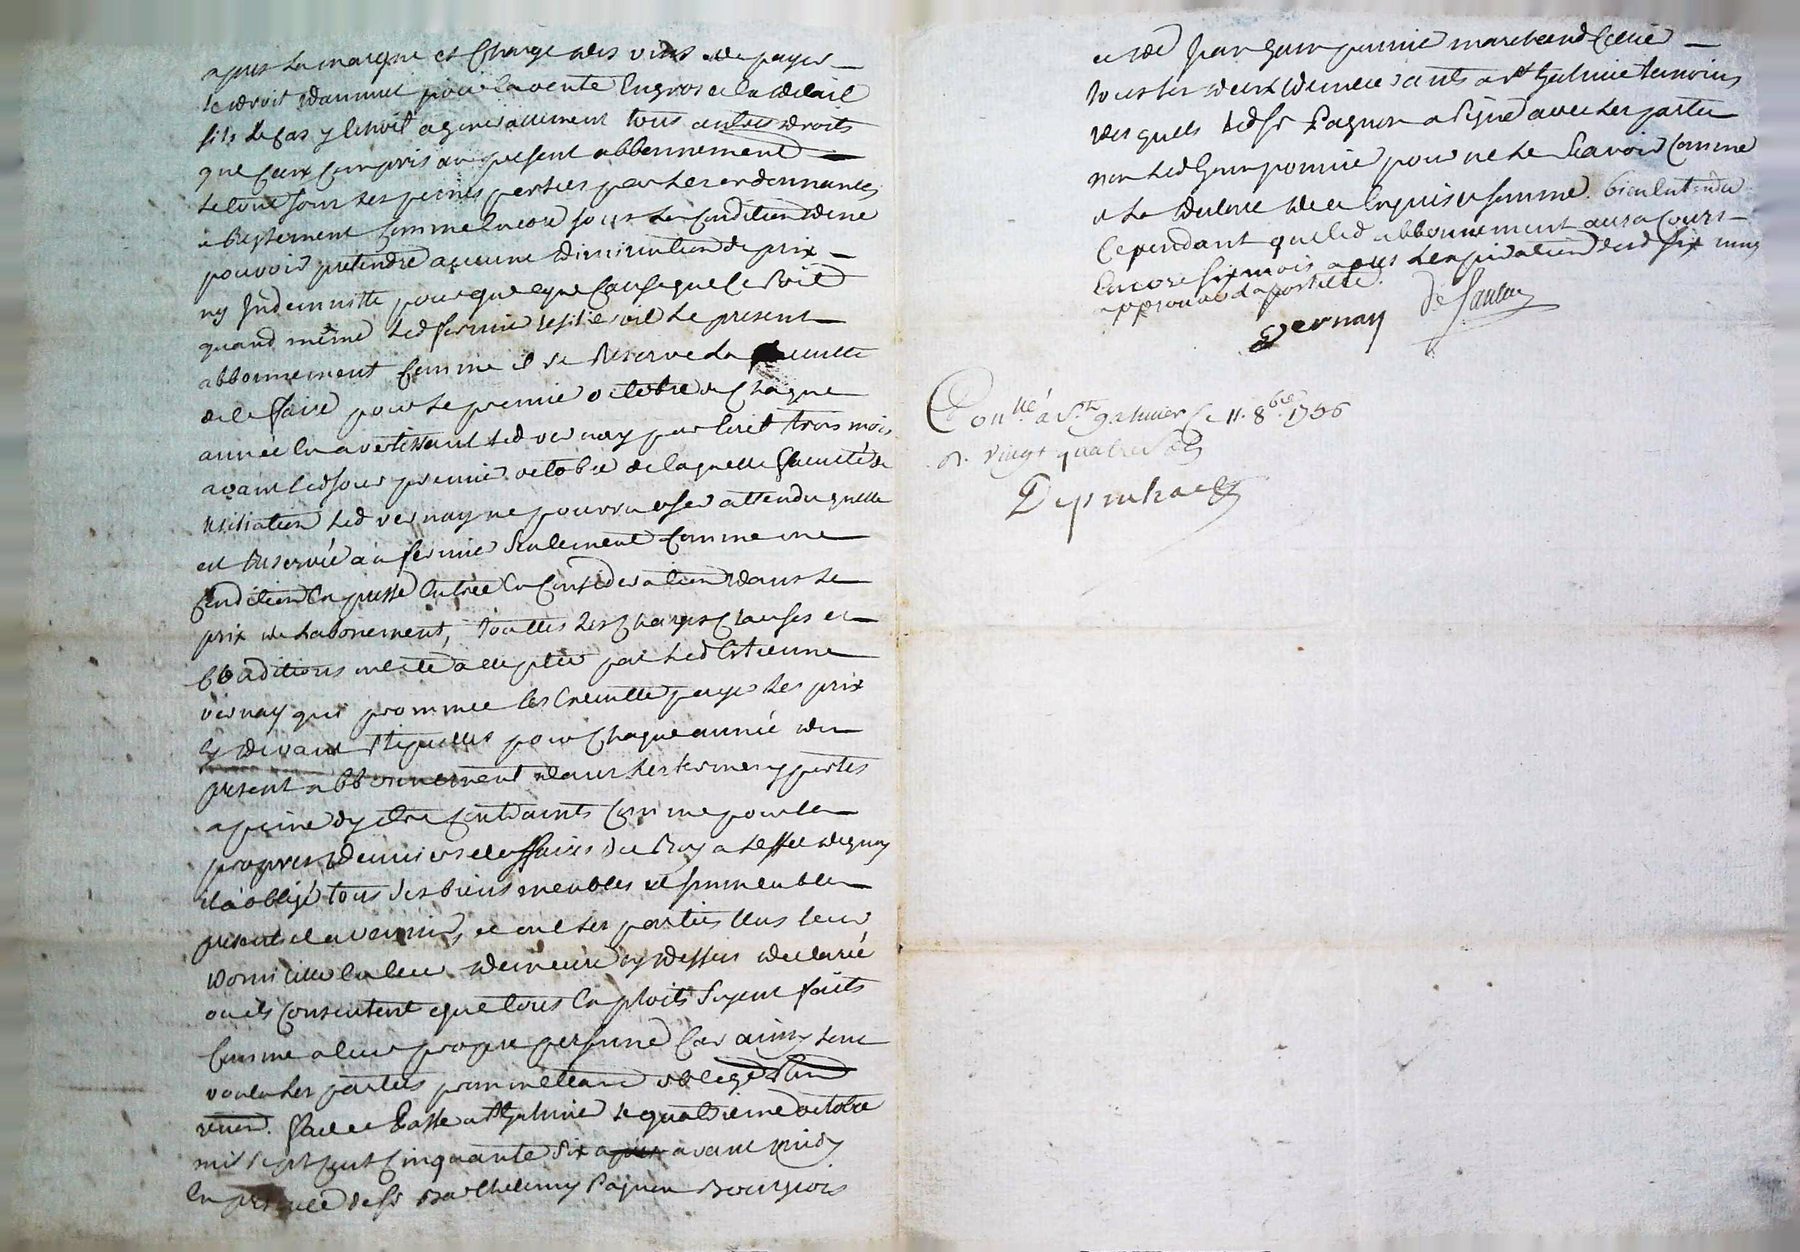 apres la marque et Charge des vins de payer
le droit d'annuel pour la vente en gros et le detail
sils le cas y echoit a generallement tous autres droits
que ceux compris au present abbonnement
le tout sous les peines portées par les ordonnances
et Reglement comme encore sous la condition de ne
pouvoir pretendre aucune diminution de prix
ny Indemnitté pour quelque cause que ce soit
quand même led fermier resilieroit le present
abbonnement comme il se Reserve la faculté
de le faire pour le premier octobre de chaque
année en avertissant led vernay par écrit trois mois
avant led jour premier octobre de laquelle faculté de
resiliation led vernay ne pourra user attendu quelle
est Reservée au fermier seulement comme une
condition expresse entrée en consideration dans le
prix de labonnement, touttes les charges clauses et
Conditions ont été acceptées par led Estienne
vernay qui promet les executter payer les prix
cy devant stipullés pour chaque année du
present abbonnement dans les termes y portés
a peine d'y etre contraints comme pour les
propres deniers et affaires du Roy a leffet de quoy
il a obligé tous ses biens meubles et immeubles
presents et avenir, et ont les parties élus leur
domicille en leur demeure cy dessus declarée
ou ils consentent que tous exploits soyent faits
comme a leur propre personne car ainsy l'ont
voulu les parties promettant obligeant
renon. fait et Passé a St Galmier le quatrieme octobre
mil sept cent cinquante six apres avant midy
en presence de Sr Barthelemy Pagnon Bourgeois
et de Jean Gompommier marchand
tous les deux demeurants a St Galmier temoins
des quels led Sr Pagnon a signé avec les parties
non led Gompommier pour ne le scavoir comme
il la declaré de ce enquis et sommé. bien entendu
cependant que led abbonnement aura cours
encore six mois apres lexpiration desd six ans
approuvé la postille.
vernay De
Con.llé a St galmier le 11. 8bre 1756
R. vingt quatre sols